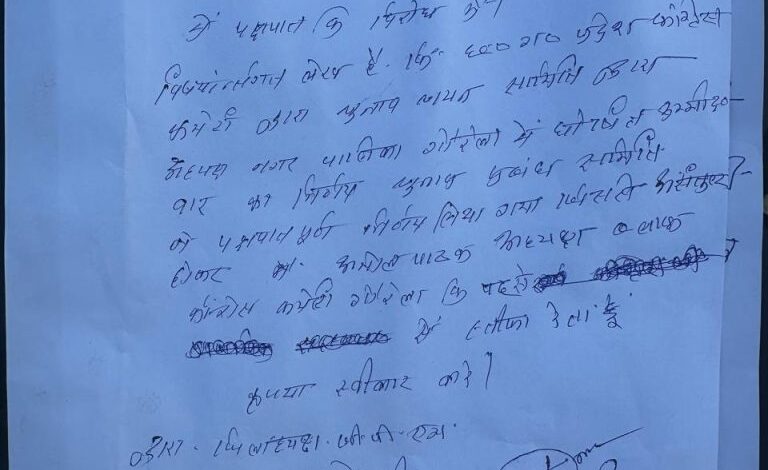 में पक्षपात कि विरोध में
विषयांन्तर्गत लेख है. कि छ०ग० प्रदेश काँग्रेस
कमेटी द्वारा चुनाव चयन समिति द्वारा
अध्यक्ष नगर पालिका गौरेला में घोषित उम्मीद-
वार का निर्णय चुनाव प्रबंध समिति
ने पक्षपात पूर्ण निर्णय लिया गया जिससे असंतुष्ट
होकर मैं पाठक अध्यक्ष ब्लाक
काँग्रेस कमेटी गौरेला कि पद से
से स्तीफा देता हूँ
कृपया स्वीकार करे।
द्वारा. जिलाध्यक्ष. जी. पी. एम.